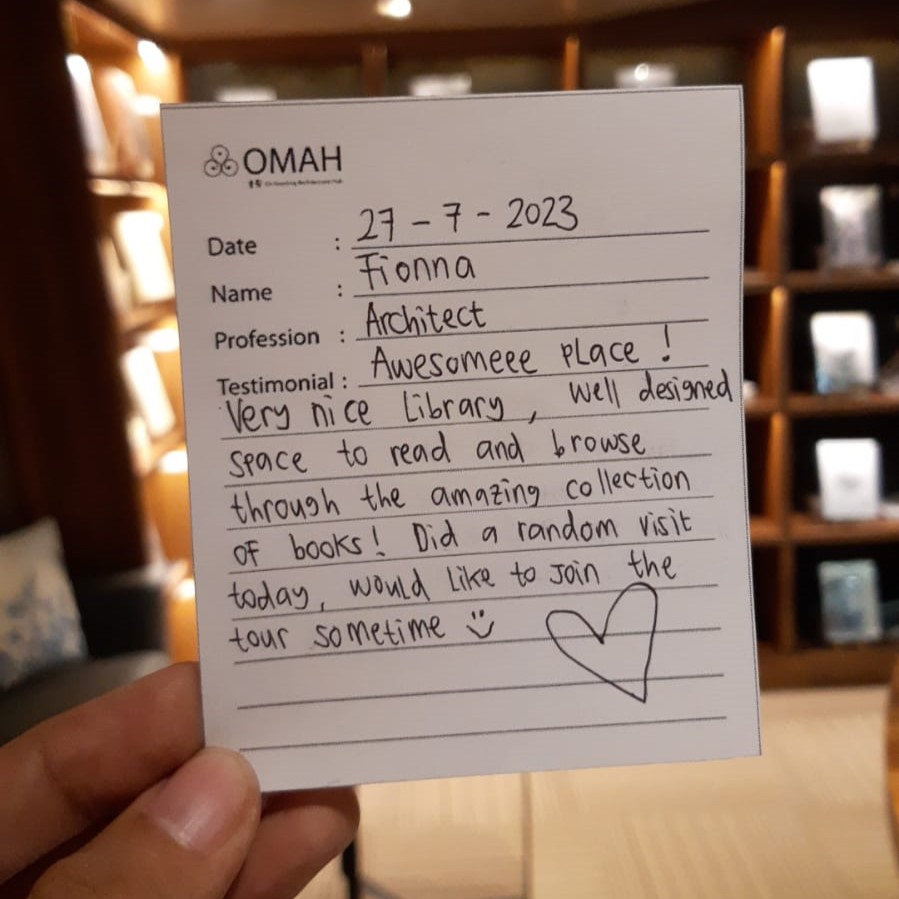 OMAH
Date : 27 - 7 - 2023
Name : Fionna
Profession : Architect
Testimonial : Awesomeee place !
Very nice library , well designed
space to read and browse
through the amazing collection
of books! Did a random visit
today, would like to join the
tour sometime